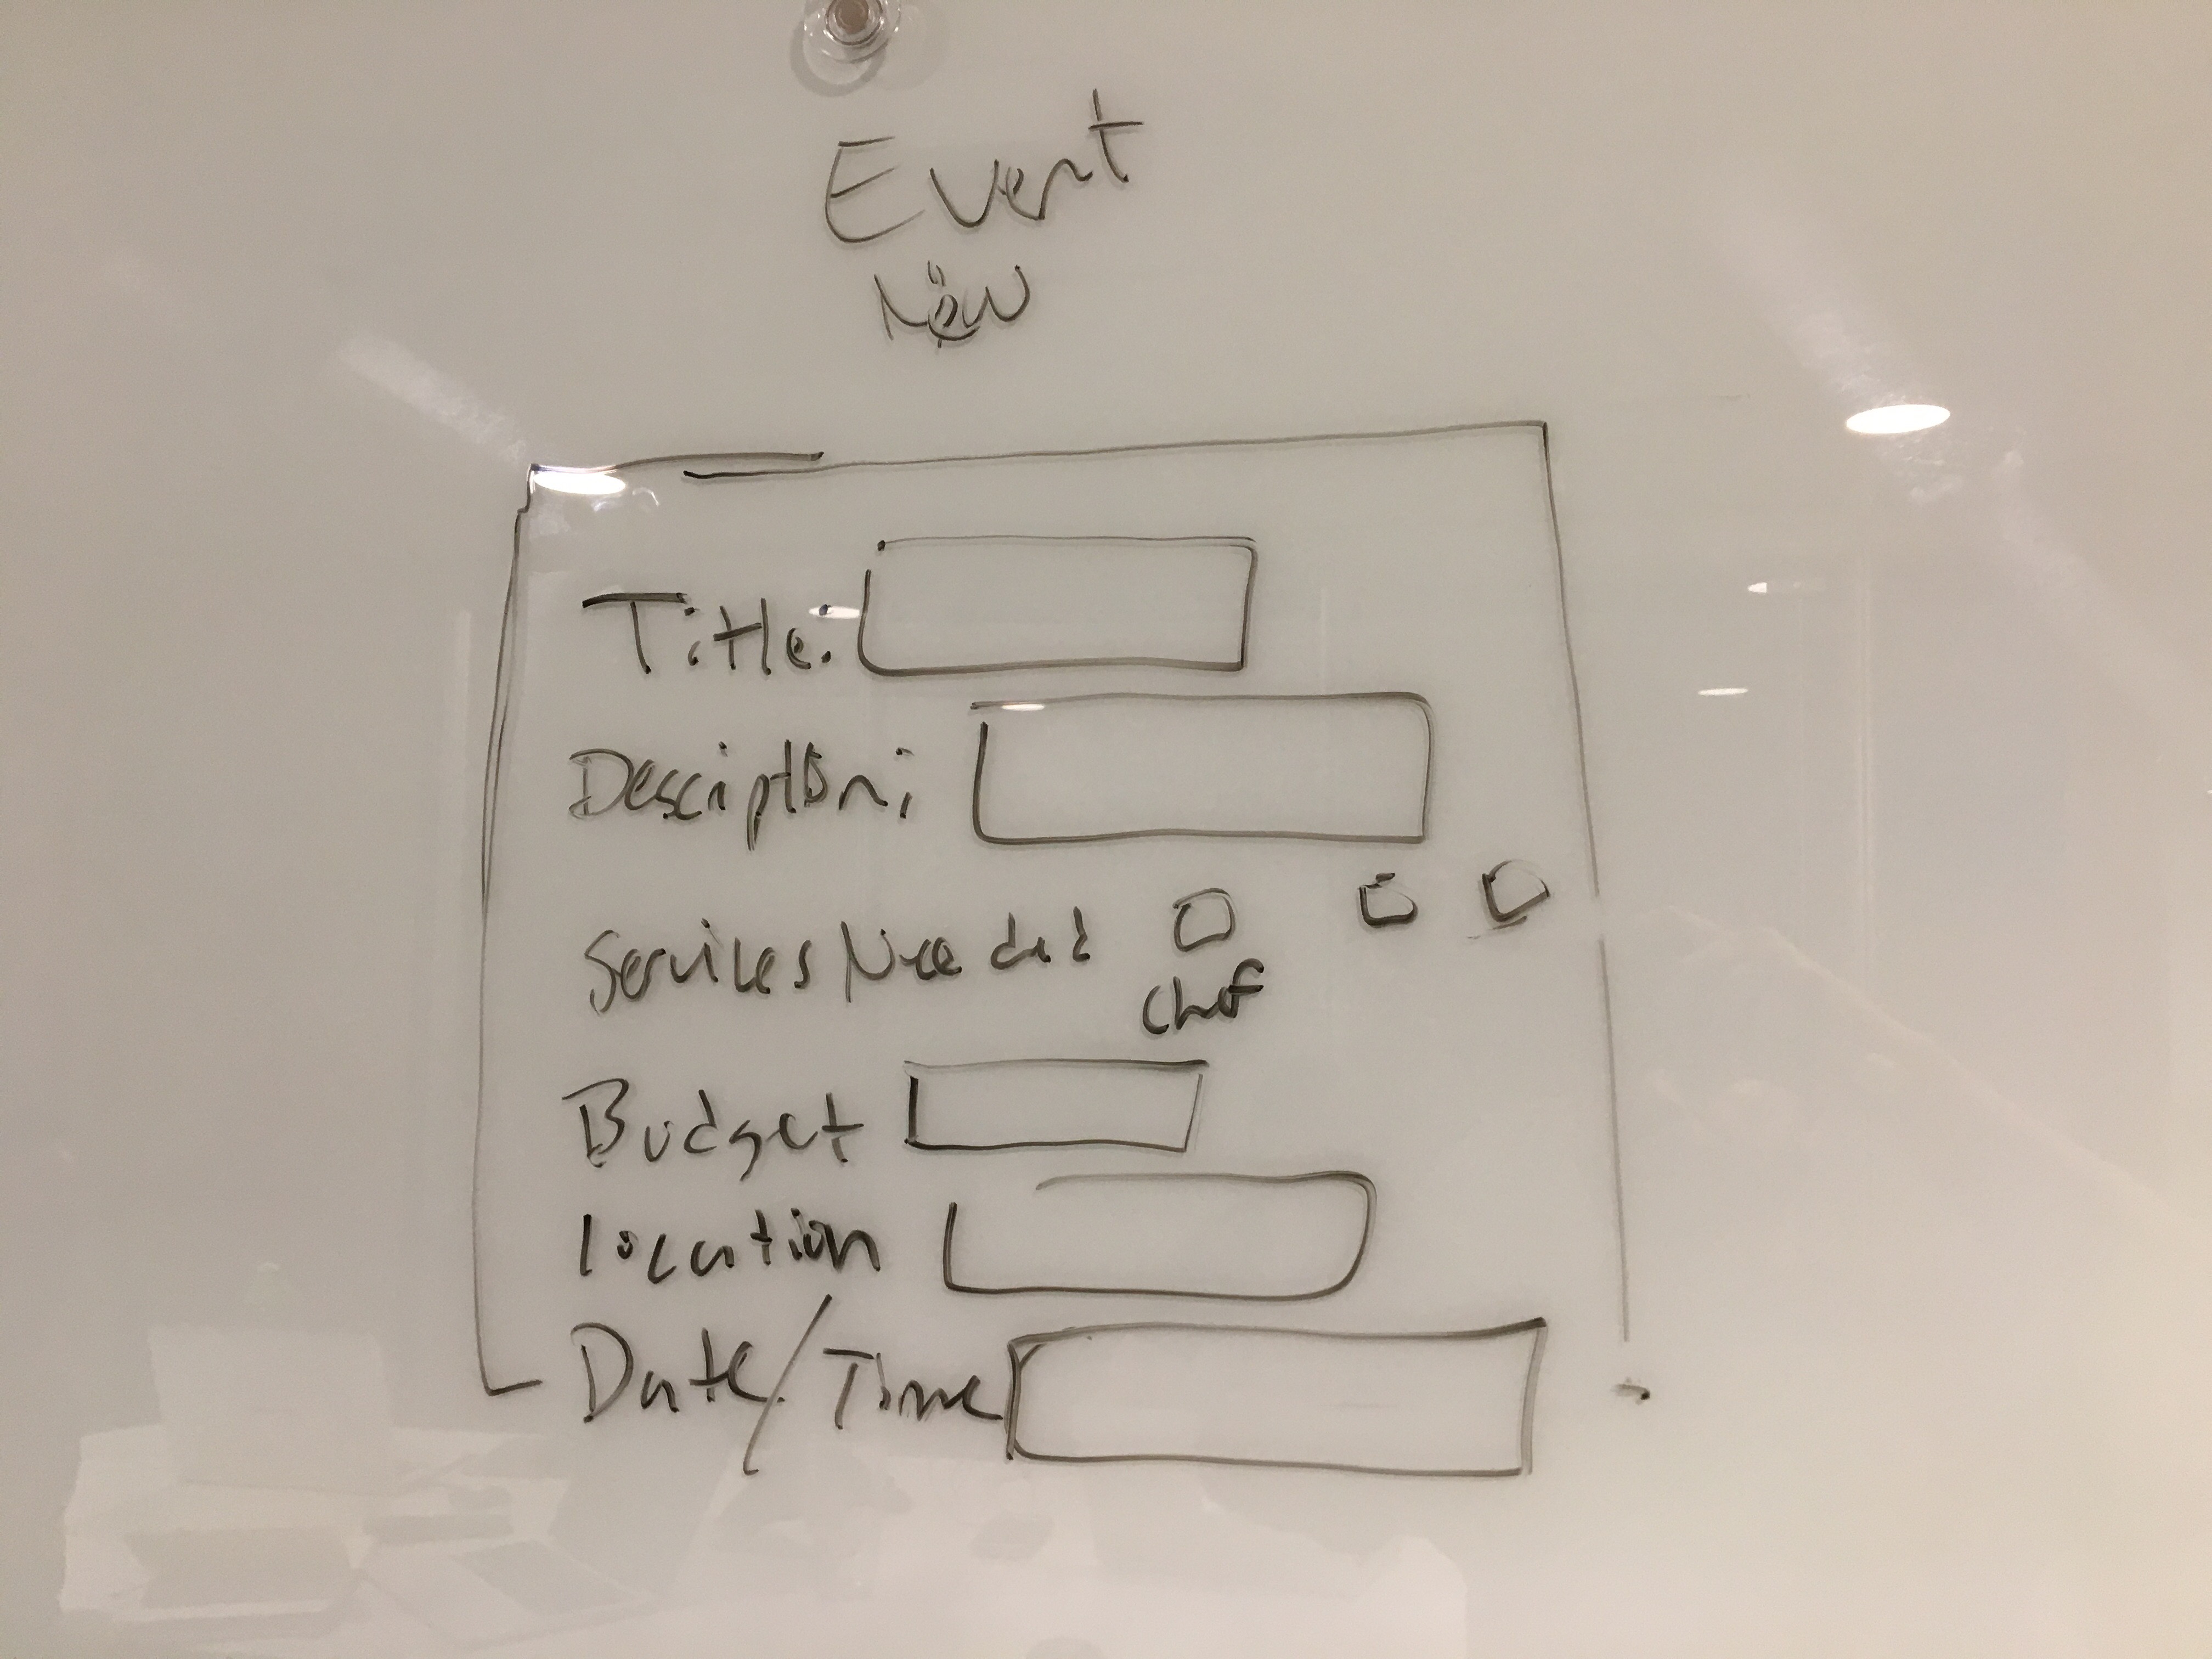 Event
New
Title:
Description:
Services Needed
Chef
Budget
location
Date/Time